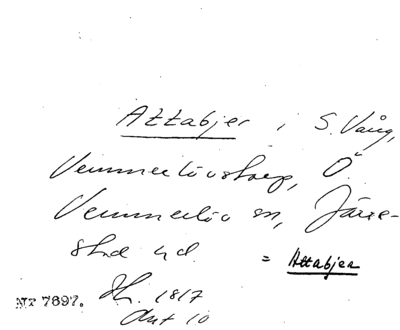 Attabjer i S. Vång,
Vemmerlövstorp, Ö.
Vemmerlöv sn, Järre-
stad hd.
= Attabjer
Nr 7897. Sk. 1817
Akt 10